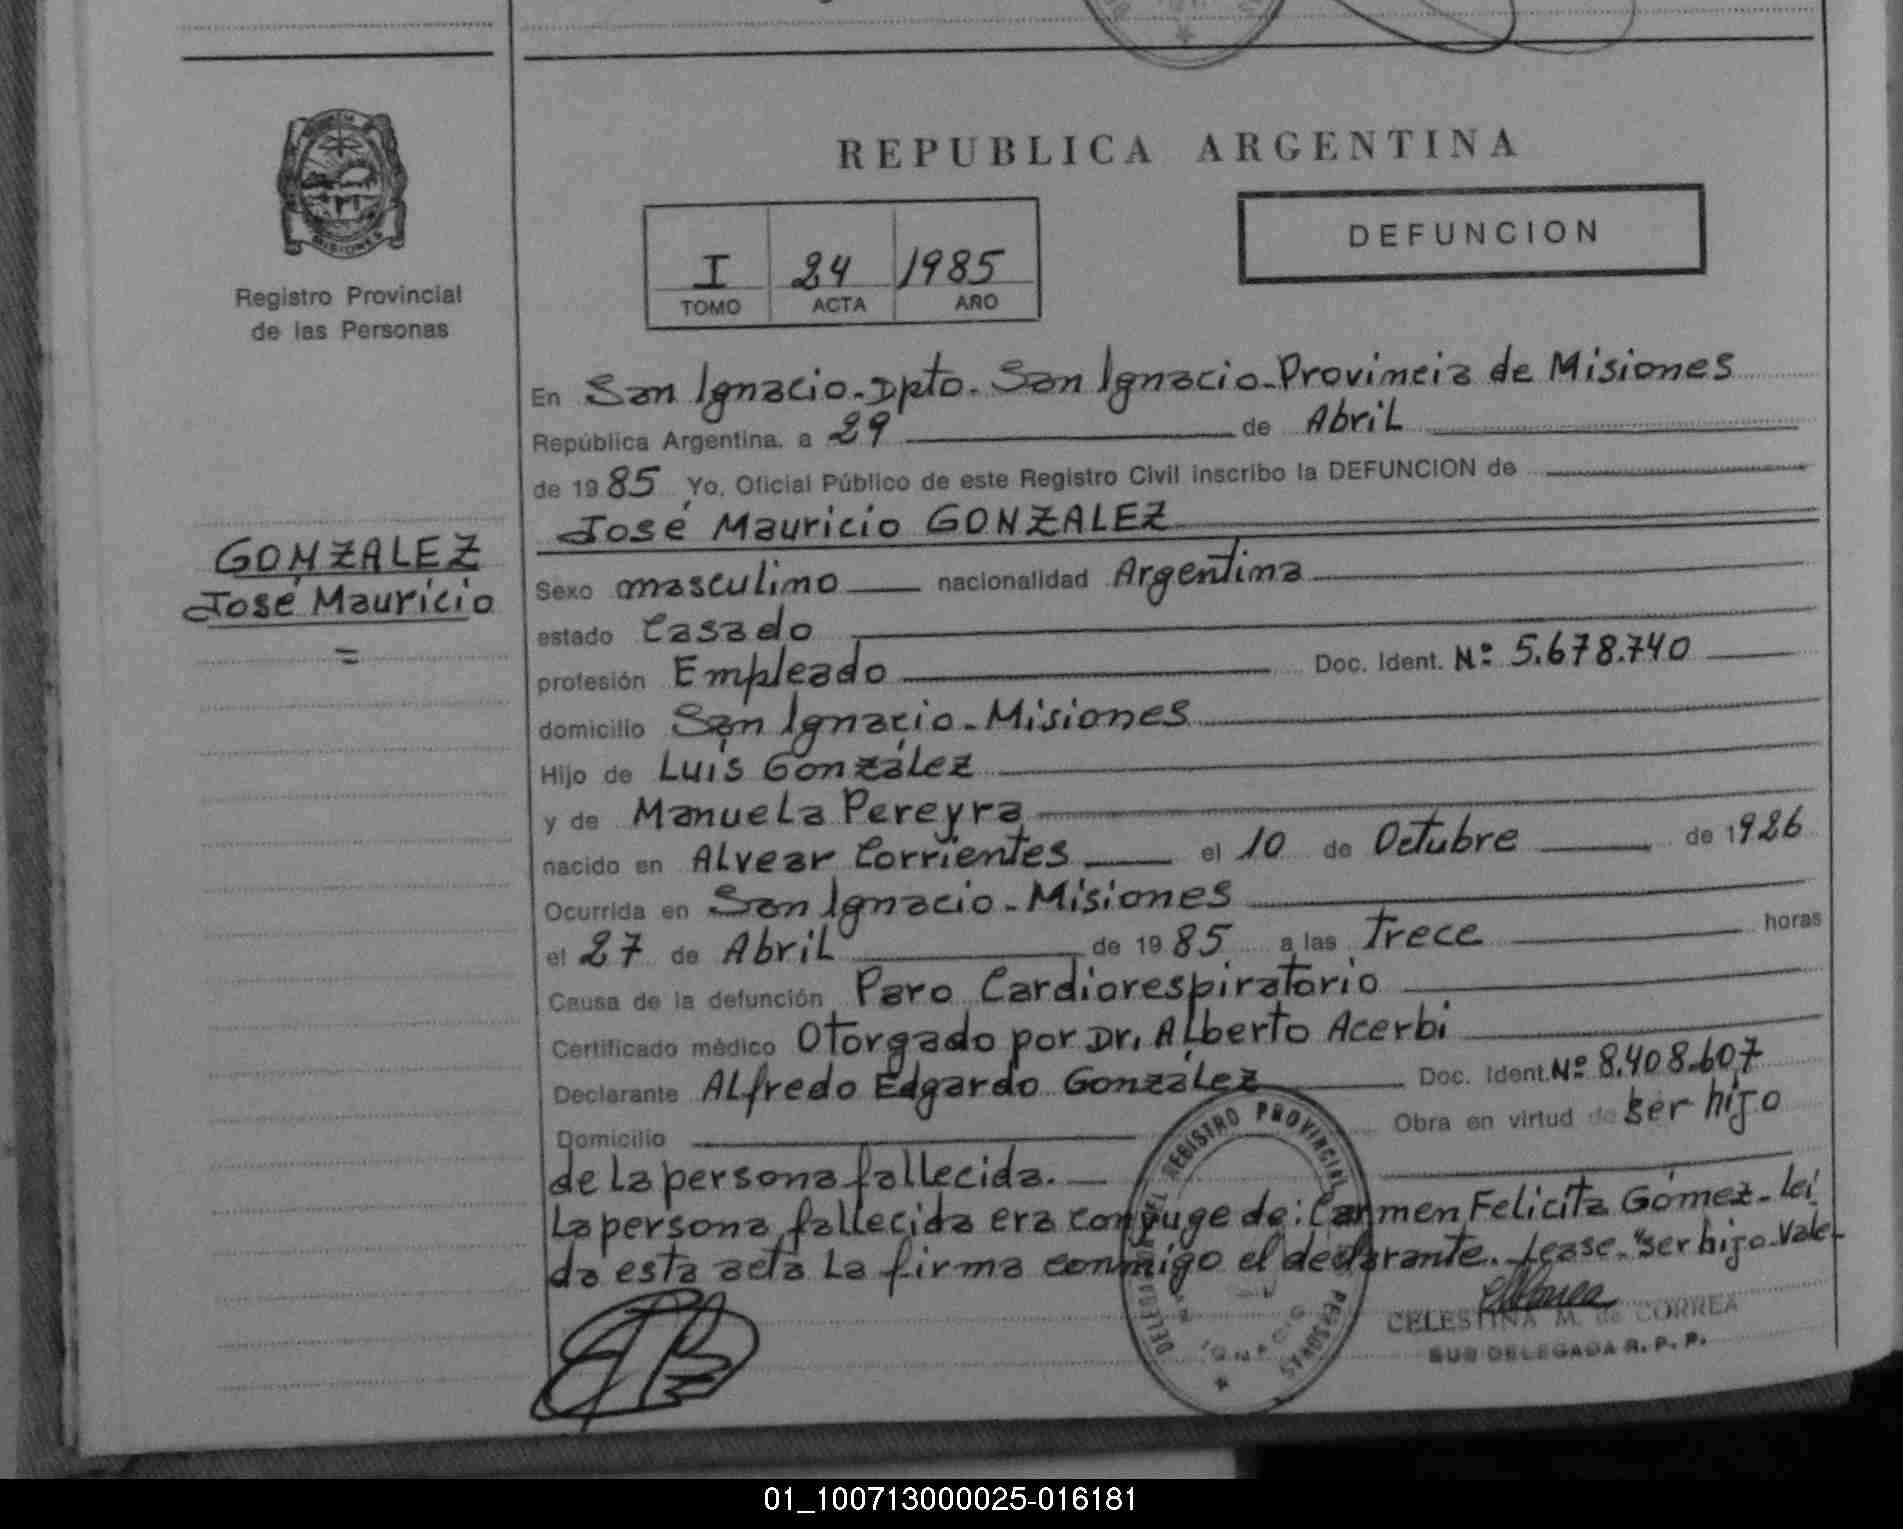 REPUBLICA ARGENTINA
DEFUNCION
I 24 1985
TOMO ACTA AÑO
MISIONES
Registro Provincial
de las Personas
GONZALEZ
José Mauricio
=
En San Ignacio-Dpto. San Ignacio-Provincia de Misiones
República Argentina, a 29 de Abril
de 1985 Yo, Oficial Público de este Registro Civil inscribo la DEFUNCION de
José Mauricio GONZALEZ
Sexo masculino nacionalidad Argentina
estado Casado
profesión Empleado Doc. Ident. Nº: 5.678.740
domicilio San Ignacio-Misiones
Hijo de Luis González
y de Manuela Pereyra
nacido en Alvear Corrientes el 10 de Octubre de 1926
Ocurrida en San Ignacio-Misiones
el 27 de Abril de 1985 a las trece horas
Causa de la defunción Paro Cardiorespiratorio
Certificado médico Otorgado por Dr. Alberto Acerbi
Declarante Alfredo Edgardo González Doc. Ident. Nº 8.408.607
Domicilio Obra en virtud de ser hijo
de la persona fallecida.
La persona fallecida era conyuge de: Carmen Felicita Gómez-leí
da esta acta la firma conmigo el declarante. Lease-"ser hijo-Vale-
CELESTINA M. de CORREA
SUB DELEGADA R. P. P.
DELEGA DEL REGISTRO PROVINCIAL PERSONAS
IGNACIO
01_100713000025-016181